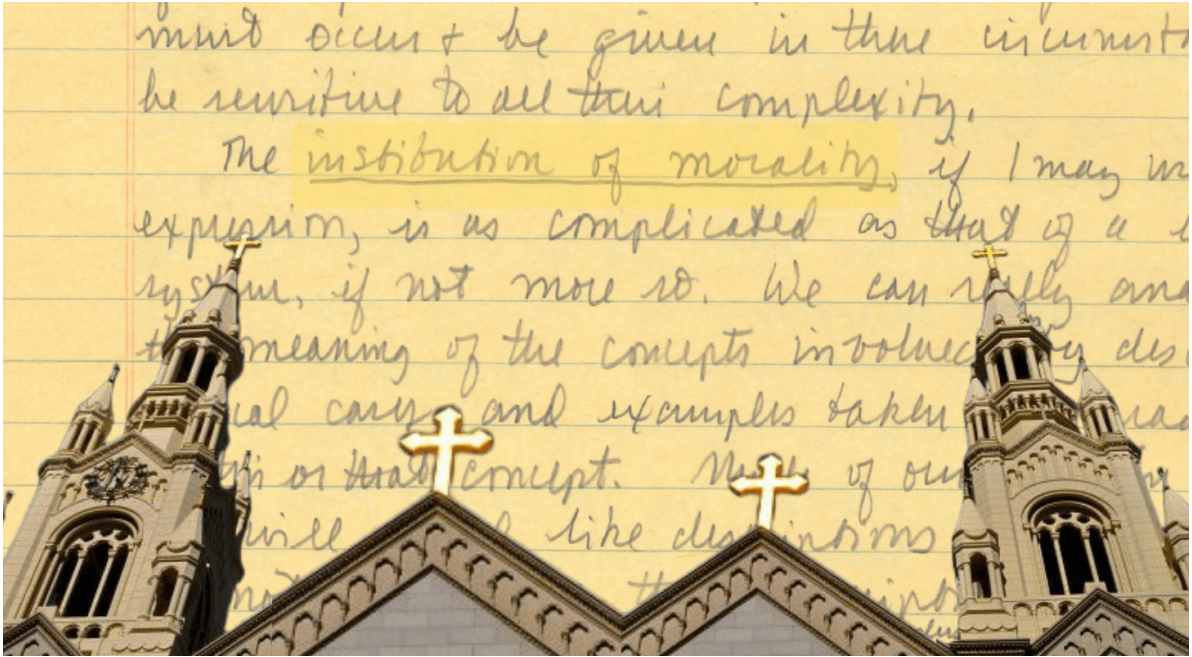 must occur + be given in these circumst
be sensitive to all their complexity.
The institution of morality, if I may us
expression, is as complicated as that of a l
system, if not more so. We can really ana
the meaning of the concepts involved by des
ual cases and examples taken
in or that concept. of our
will like descriptions